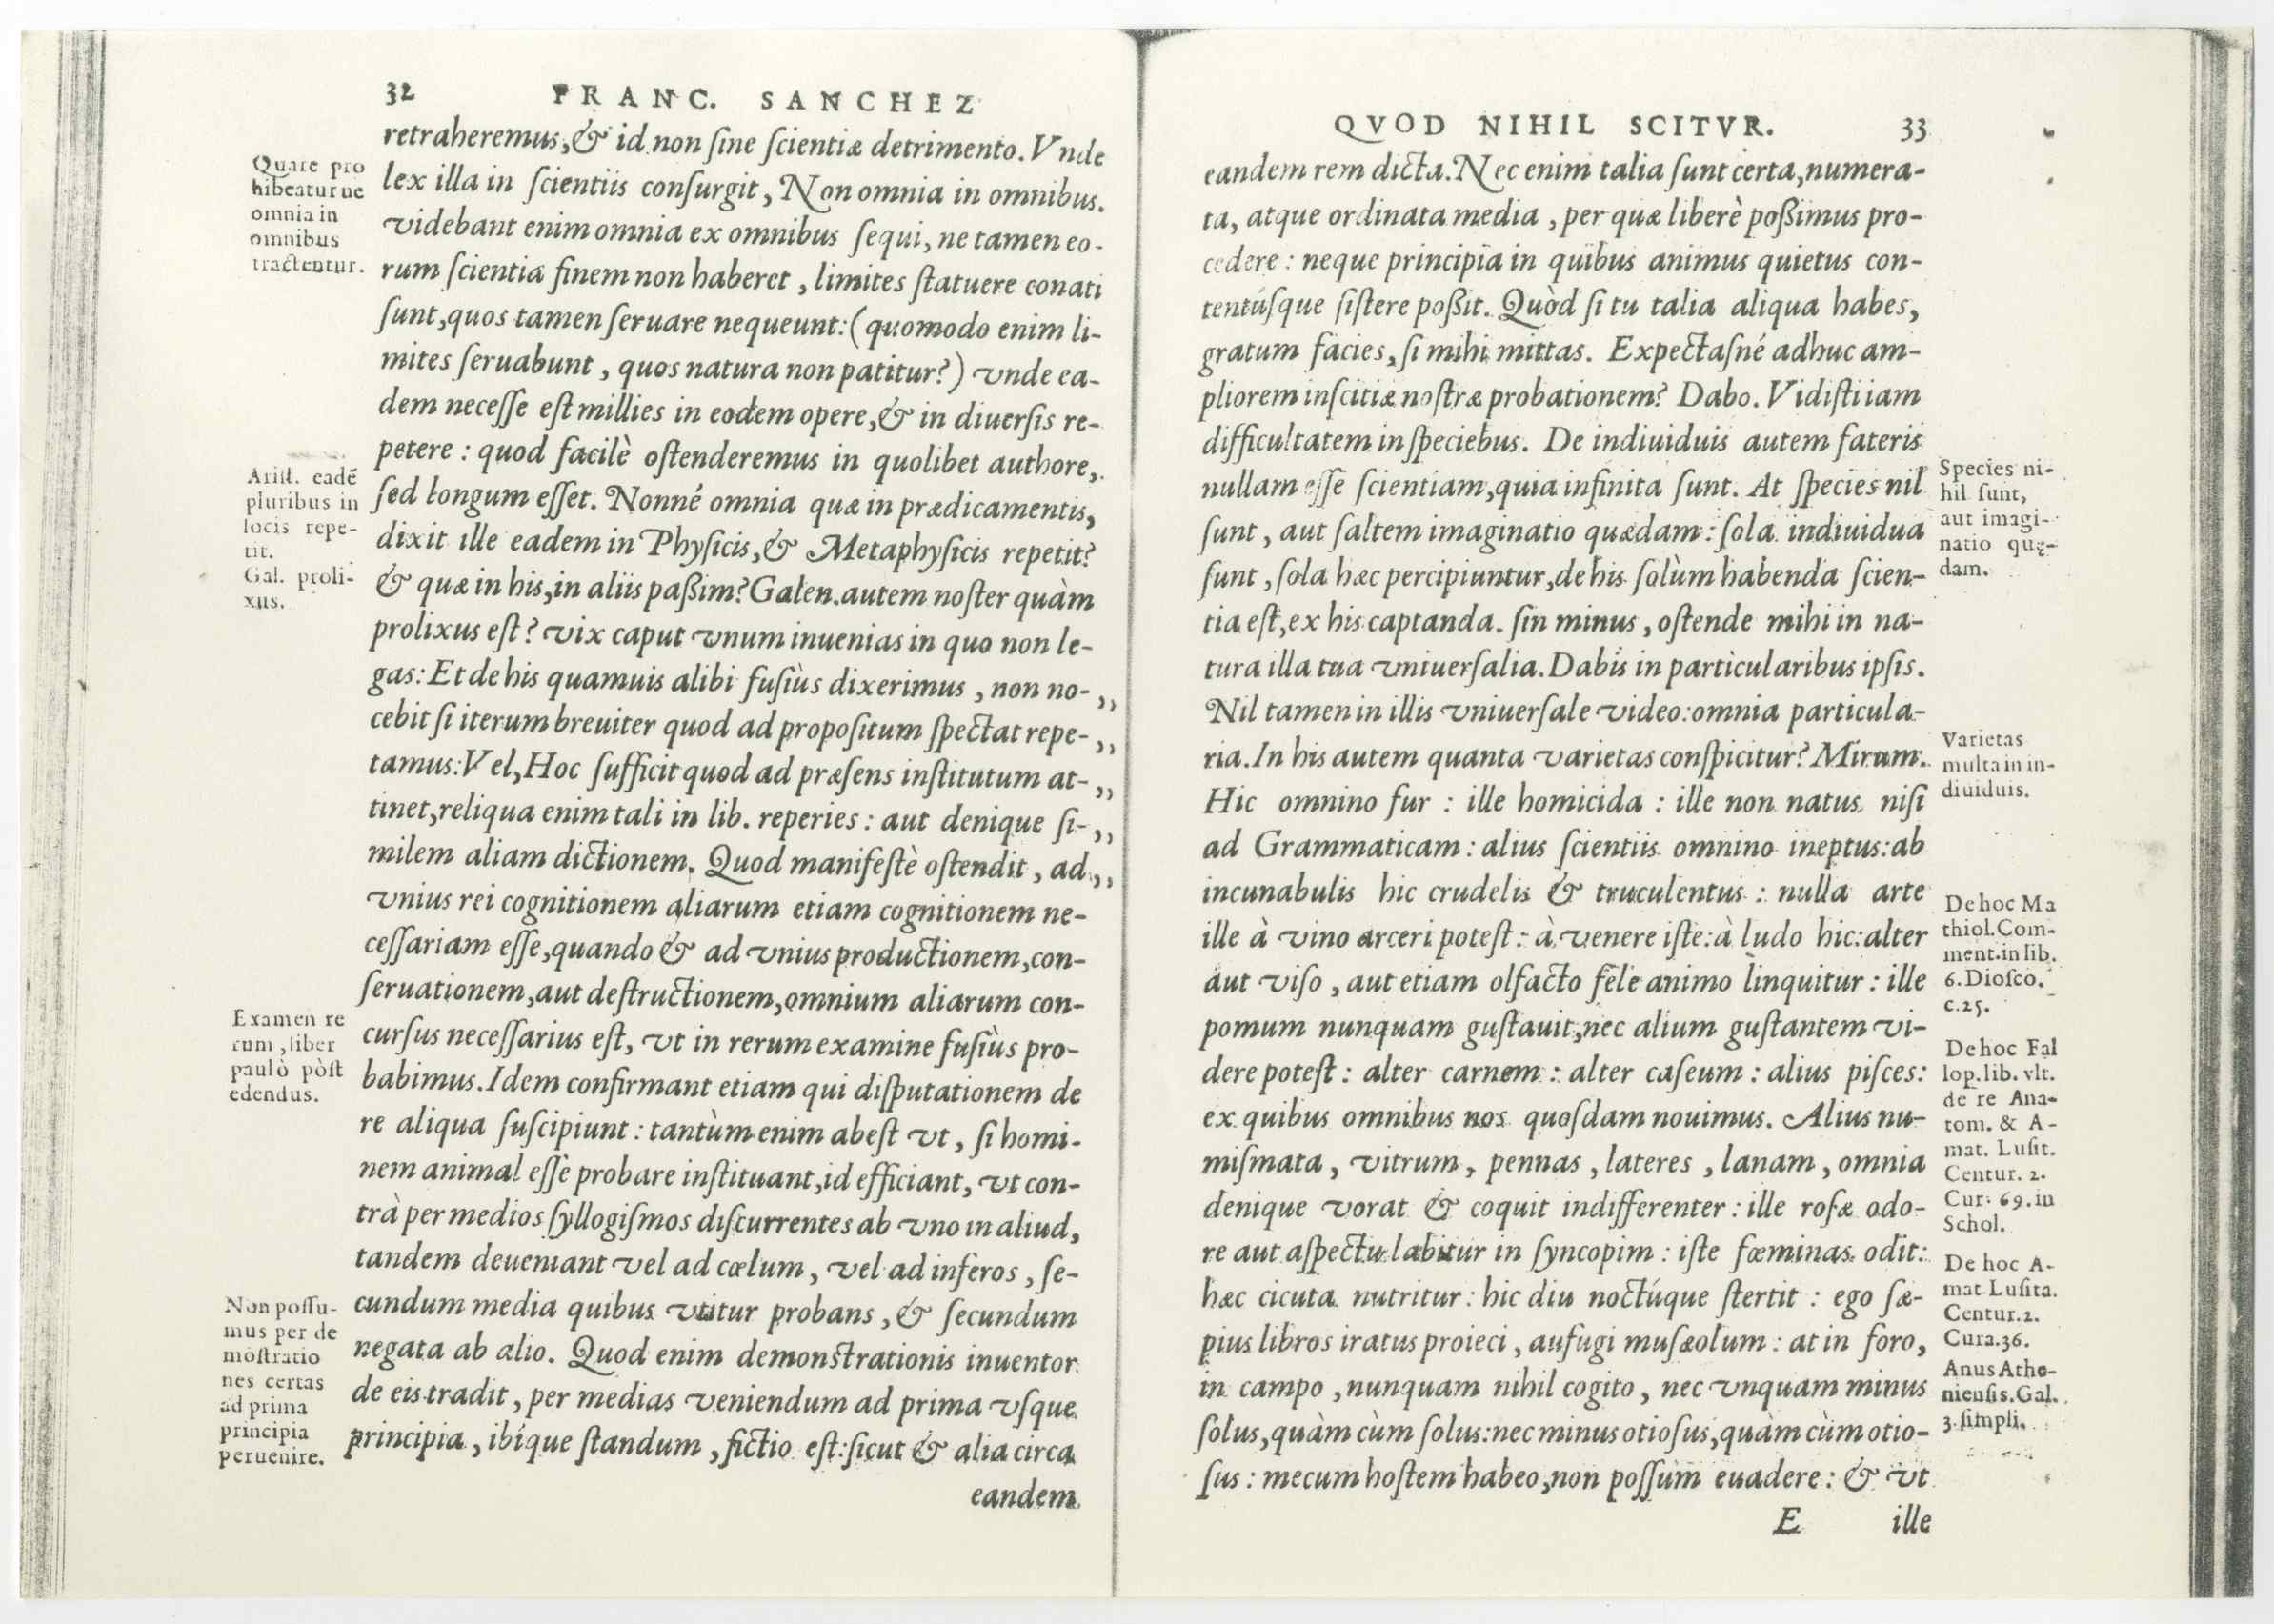 32 FRANC. SANCHEZ
retraheremus,& id non ſine ſcientiæ detrimento. Vnde
lex illa in ſcientiis conſurgit, Non omnia in omnibus.
videbant enim omnia ex omnibus ſequi, ne tamen eo-
rum ſcientia finem non haberet, limites ſtatuere conati
ſunt,quos tamen ſeruare nequeunt:(quomodo enim li-
mites ſeruabunt, quos natura non patitur?) vnde ea-
dem neceſſe eſt millies in eodem opere,& in diuerſis re-
petere: quod facilè oſtenderemus in quolibet authore,
ſed longum eſſet. Nonné omnia quæ in prædicamentis,
dixit ille eadem in Phyſicis,& Metaphyſicis repetit?
& quæ in his,in aliis paßim? Galen. autem noſter quàm
prolixus eſt? vix caput vnum inuenias in quo non le-
gas: Et de his quamuis alibi fuſiùs dixerimus, non no-,,
cebit ſi iterum breuiter quod ad propoſitum ſpectat repe-,,
tamus: Vel, Hoc ſufficit quod ad præſens inſtitutum at-,,
tinet,reliqua enim tali in lib. reperies: aut denique ſi-,,
milem aliam dictionem. Quod manifeſtè oſtendit, ad,,
vnius rei cognitionem aliarum etiam cognitionem ne-
ceſſariam eſſe,quando & ad vnius productionem,con-
ſeruationem,aut deſtructionem,omnium aliarum con-
curſus neceſſarius eſt, vt in rerum examine fuſiùs pro-
babimus. Idem confirmant etiam qui diſputationem de
re aliqua ſuſcipiunt: tantùm enim abeſt vt, ſi homi-
nem animal eſſe probare inſtituant,id efficiant, vt con-
trà per medios ſyllogiſmos diſcurrentes ab vno in aliud,
tandem deueniant vel ad cœlum, vel ad inferos, ſe-
cundum media quibus vtitur probans, & ſecundum
negata ab alio. Quod enim demonſtrationis inuentor
de eis tradit, per medias veniendum ad prima vſque
principia, ibique ſtandum, fictio eſt: ſicut & alia circa
eandem
Quare pro
hibeatur ne
omnia in
omnibus
tractentur.
Ariſt. eadē
pluribus in
locis repe-
tit.
Gal. proli-
xus.
Examen re
rum, liber
paulò pòſt
edendus.
Non poſſu-
mus per de
mōſtratio
nes certas
ad prima
principia
peruenire.
QVOD NIHIL SCITVR. 33
eandem rem dicta. Nec enim talia ſunt certa,numera-
ta, atque ordinata media, per quæ liberè poßimus pro-
cedere: neque principia in quibus animus quietus con-
tentúſque ſiſtere poßit. Quòd ſi tu talia aliqua habes,
gratum facies, ſi mihi mittas. Expectaſné adhuc am-
pliorem inſcitiæ noſtræ probationem? Dabo. Vidiſti iam
difficultatem in ſpeciebus. De indiuiduis autem fateris
nullam eſſe ſcientiam,quia infinita ſunt. At ſpecies nil
ſunt, aut ſaltem imaginatio quædam: ſola indiuidua
ſunt, ſola hæc percipiuntur,de his ſolùm habenda ſcien-
tia eſt,ex his captanda. ſin minus, oſtende mihi in na-
tura illa tua vniuerſalia. Dabis in particularibus ipſis.
Nil tamen in illis vniuerſale video:omnia particula-
ria. In his autem quanta varietas conſpicitur? Mirum.
Hic omnino fur: ille homicida: ille non natus niſi
ad Grammaticam: alius ſcientiis omnino ineptus: ab
incunabulis hic crudelis & truculentus: nulla arte
ille à vino arceri poteſt: à venere iſte: à ludo hic: alter
aut viſo, aut etiam olfacto fele animo linquitur: ille
pomum nunquam guſtauit,nec alium guſtantem vi-
dere poteſt: alter carnem: alter caſeum: alius piſces:
ex quibus omnibus nos quoſdam nouimus. Alius nu-
miſmata, vitrum, pennas, lateres, lanam, omnia
denique vorat & coquit indifferenter: ille roſæ odo-
re aut aſpectu labitur in ſyncopim: iſte fœminas odit:
hæc cicuta nutritur: hic diu noctúque ſtertit: ego ſæ-
pius libros iratus proieci, aufugi muſæolum: at in foro,
in campo, nunquam nihil cogito, nec vnquam minus
ſolus,quàm cùm ſolus:nec minus otioſus,quàm cùm otio-
ſus: mecum hoſtem habeo,non poſſum euadere: & vt
E ille
Species ni-
hil ſunt,
aut imagi-
natio quę-
dam.
Varietas
multa in in-
diuiduis.
De hoc Ma
thiol.Com-
ment.in lib.
6.Dioſco.
c.25.
De hoc Fal
lop.lib. vlt.
de re Ana-
tom. & A-
mat. Luſit.
Centur. 2.
Cur. 69.in
Schol.
De hoc A-
mat.Luſita.
Centur.2.
Cura.36.
Anus Athe-
nienſis.Gal.
3.ſimpli.